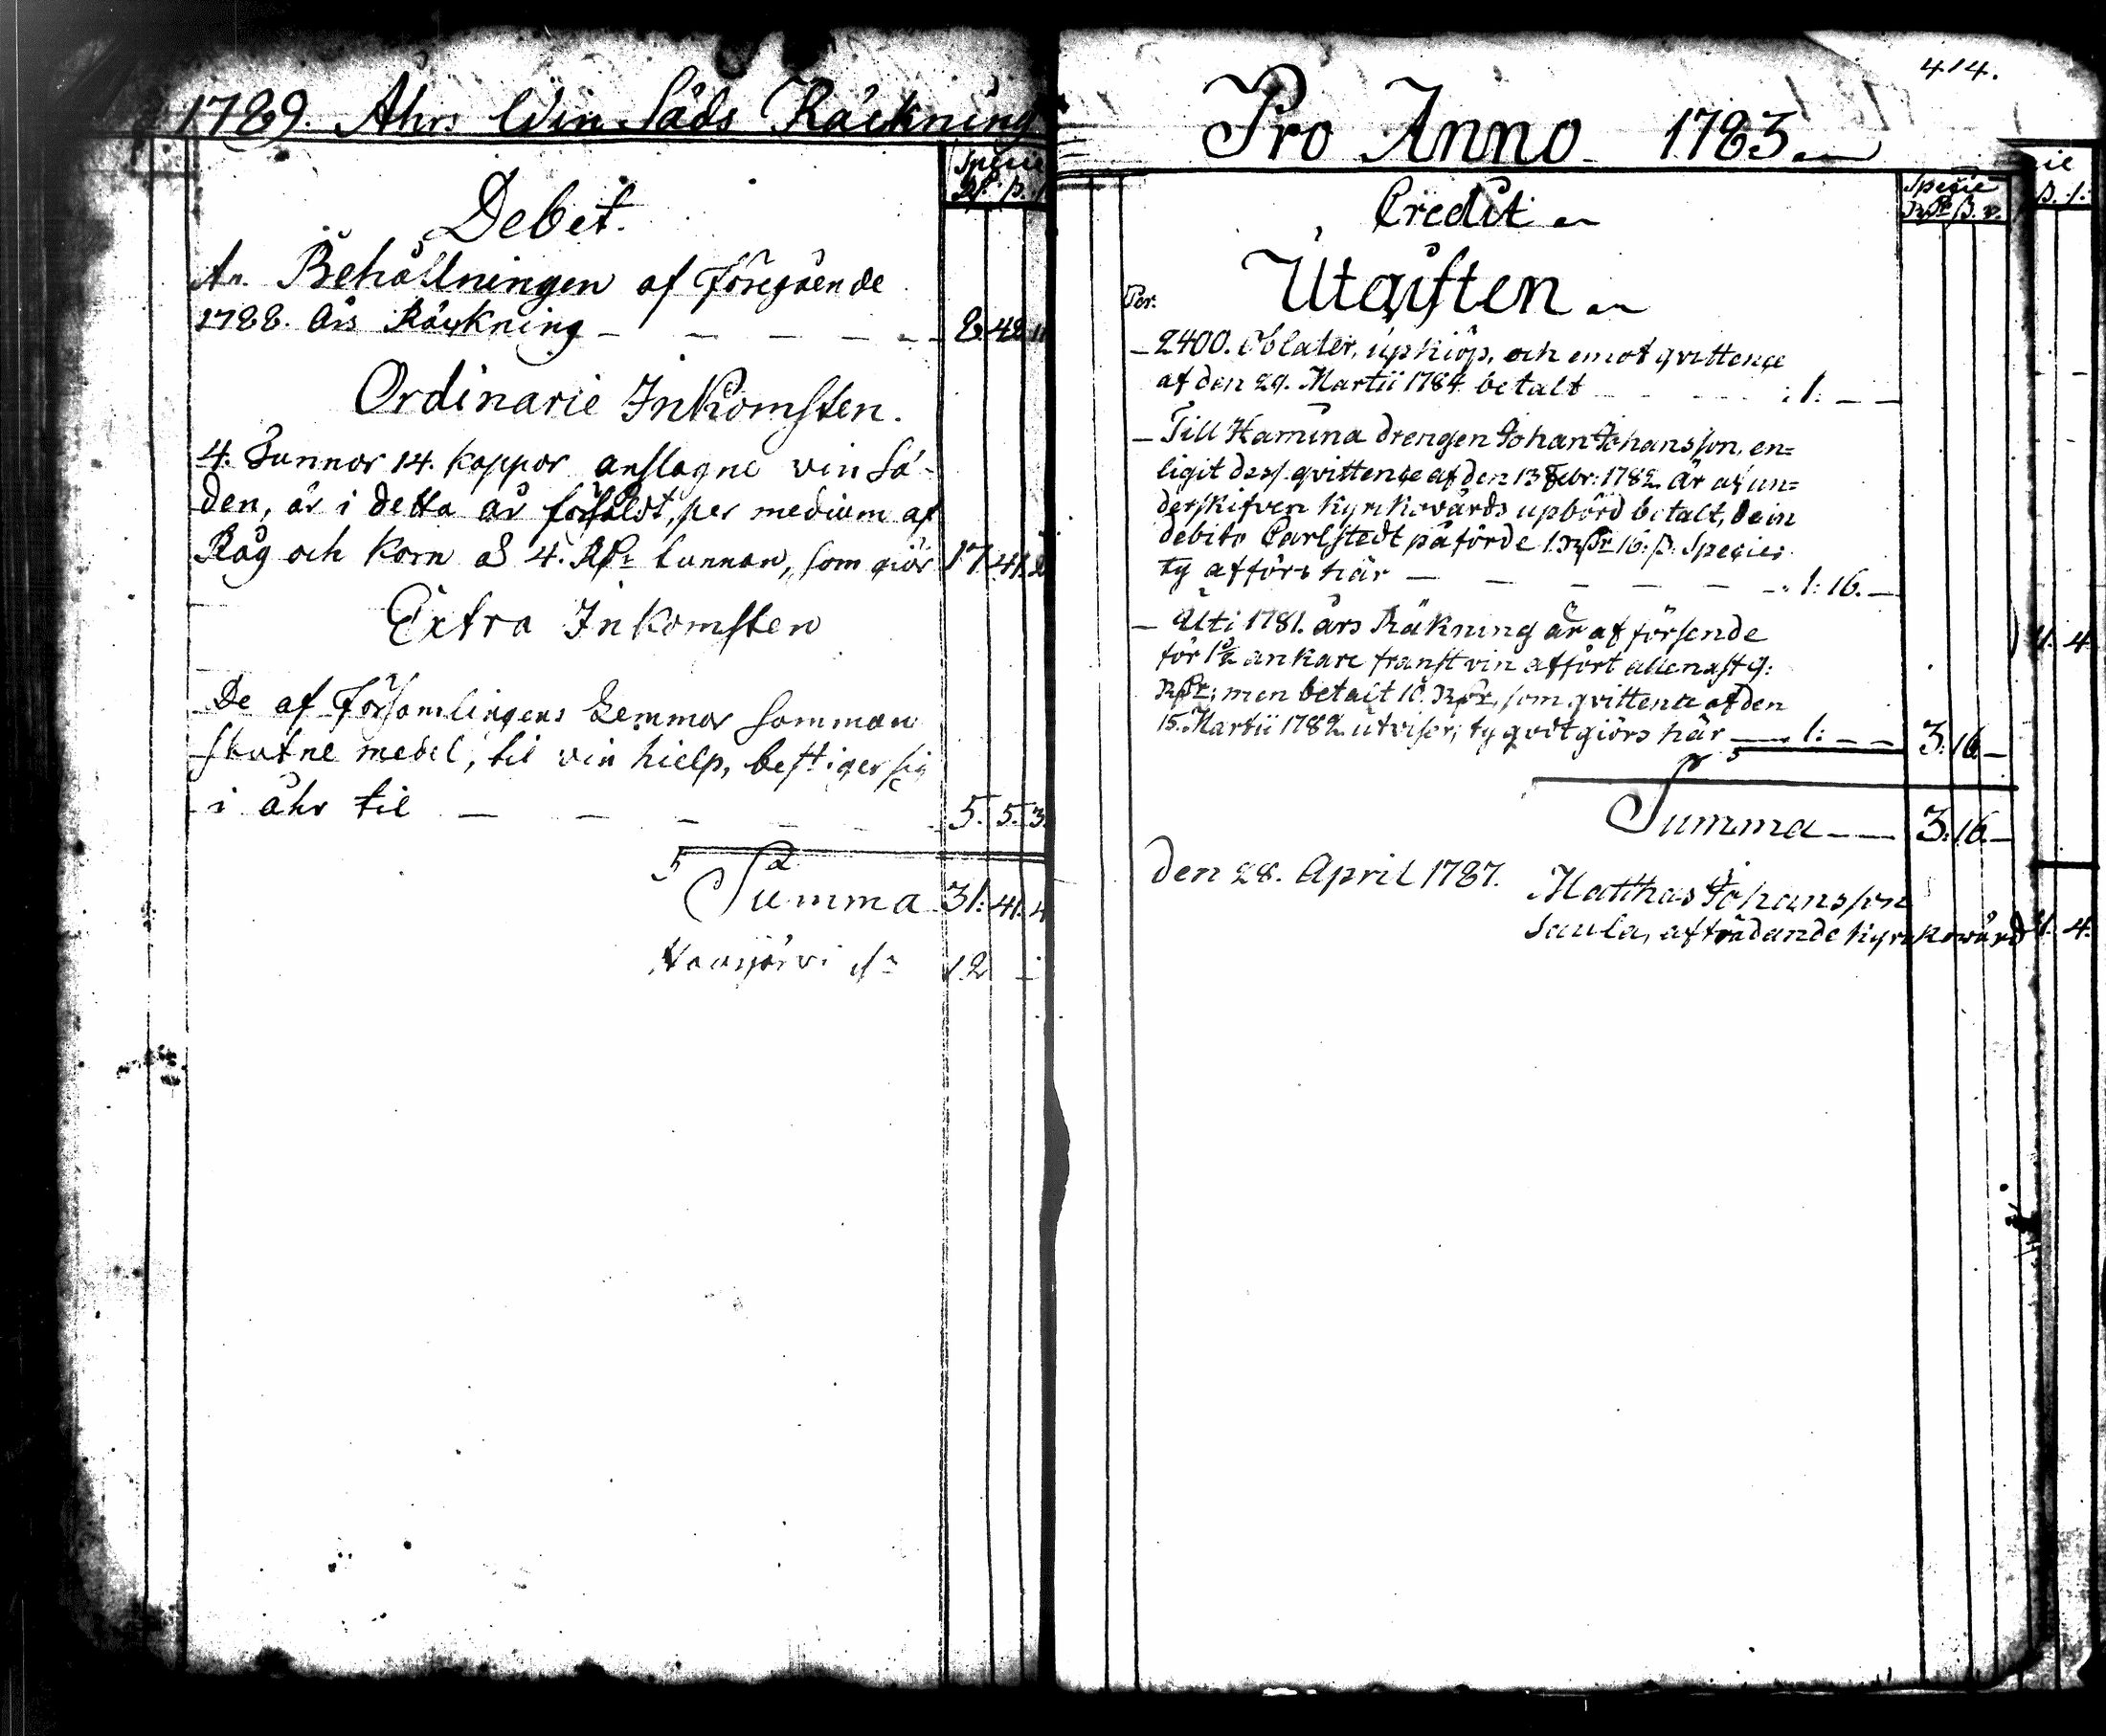 1789. Åhrs Win Säds Räckning
Specie
Rd. ß.
Debet.
An Behållningen af Föregående
1788. Års Räckning — — — — — 8. 42. 11
Ordinarie Inkomsten.
4. Tunnor 14. kappor anslagne vin Sä-
den, är i detta år försåldt, per medium af
Råg och Korn à 4. Rdr tunnan, som giör 17. 41. 2
Extra Inkomsten
De af Församlingens Lemmar samman
skutne medel, til vin hielp, bestiger sig
i åhr til — — — — — 5. 5. 3.
Summa 31: 41. 4
12
414.
Pro Anno 1783.
Credit
Specie
Rdr ß. r.
Utgiften
Per.
— 2400. Oblater, upkiöp. och emot qvittence
af den 29. Martii 1784 betalt — — : 1: — —
— Till Hamina drengen Johan Johansson, en=
ligit dess qvittence af den 13 Febr: 1782. är af un=
derskifven kyrkovärds upbörd betalt, de in
debito Carlstedt påförde 1. Rdr 16. ß. Species
ty afförs här — — — — — 1: 16. —
— Uti 1781. års Räkning är af förseende
för 1½ ankare franst vin affört allenast 9:
Rdr; men betalt 10. Rdr, som qvittence af den
15. Martii 1782 utviser; ty godtgiörs här — 1: — — 3: 16 —
Summa — — 3: 16. —
Den 28. April 1787.
Matthas Johansson
Saula, afträdande kyrkowärd
ß.
4. 4.
4. 4.